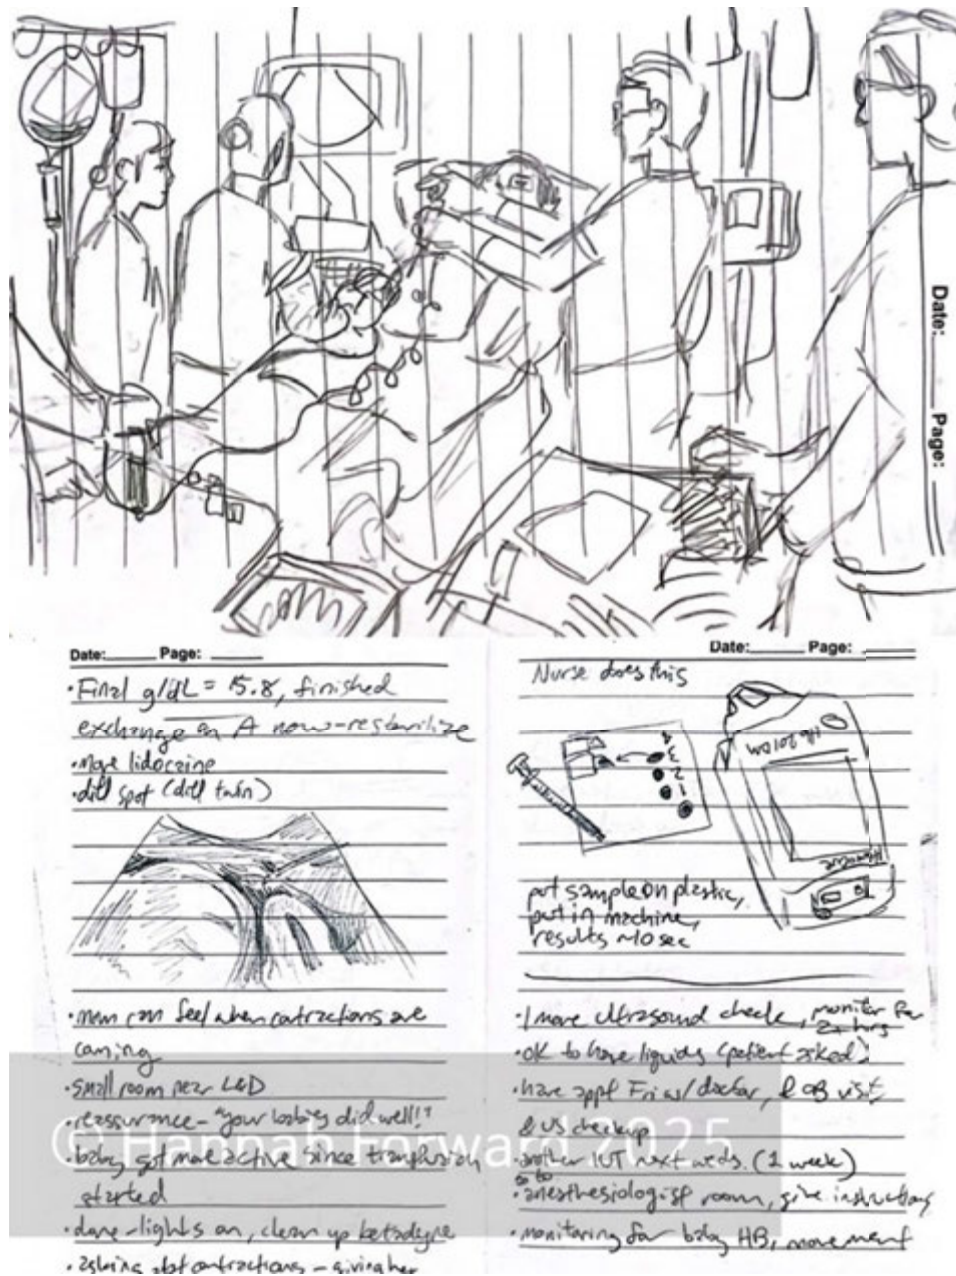 Date: Page:
Date: Page:
• Final g/dL = 15.8, finished
exchange on A now - resterilize
• more lidocaine
• diff spot (diff twin)
• mom can feel when contractions are
coming
• small room near L&D
• reassurance - "your babies did well!!"
• baby got more active since transfusion
started
• done - lights on, clean up betadyne
• asking abt contractions - giving her
Date: Page:
Nurse does this
4
3
2
1
Hb 201 DM
Hemocue
put sample on plastic,
put in machine,
results ~10 sec
• 1 more ultrasound check, monitor for
2+ hrs
• OK to have liquids (patient asked)
• have appt Fri w/doctor, & OB visit
& US checkup
• another IUT next weds. (1 week)
• go to anesthesiologist room, give instructions
• monitoring for baby HB, movement
© Hannah Forward 2025